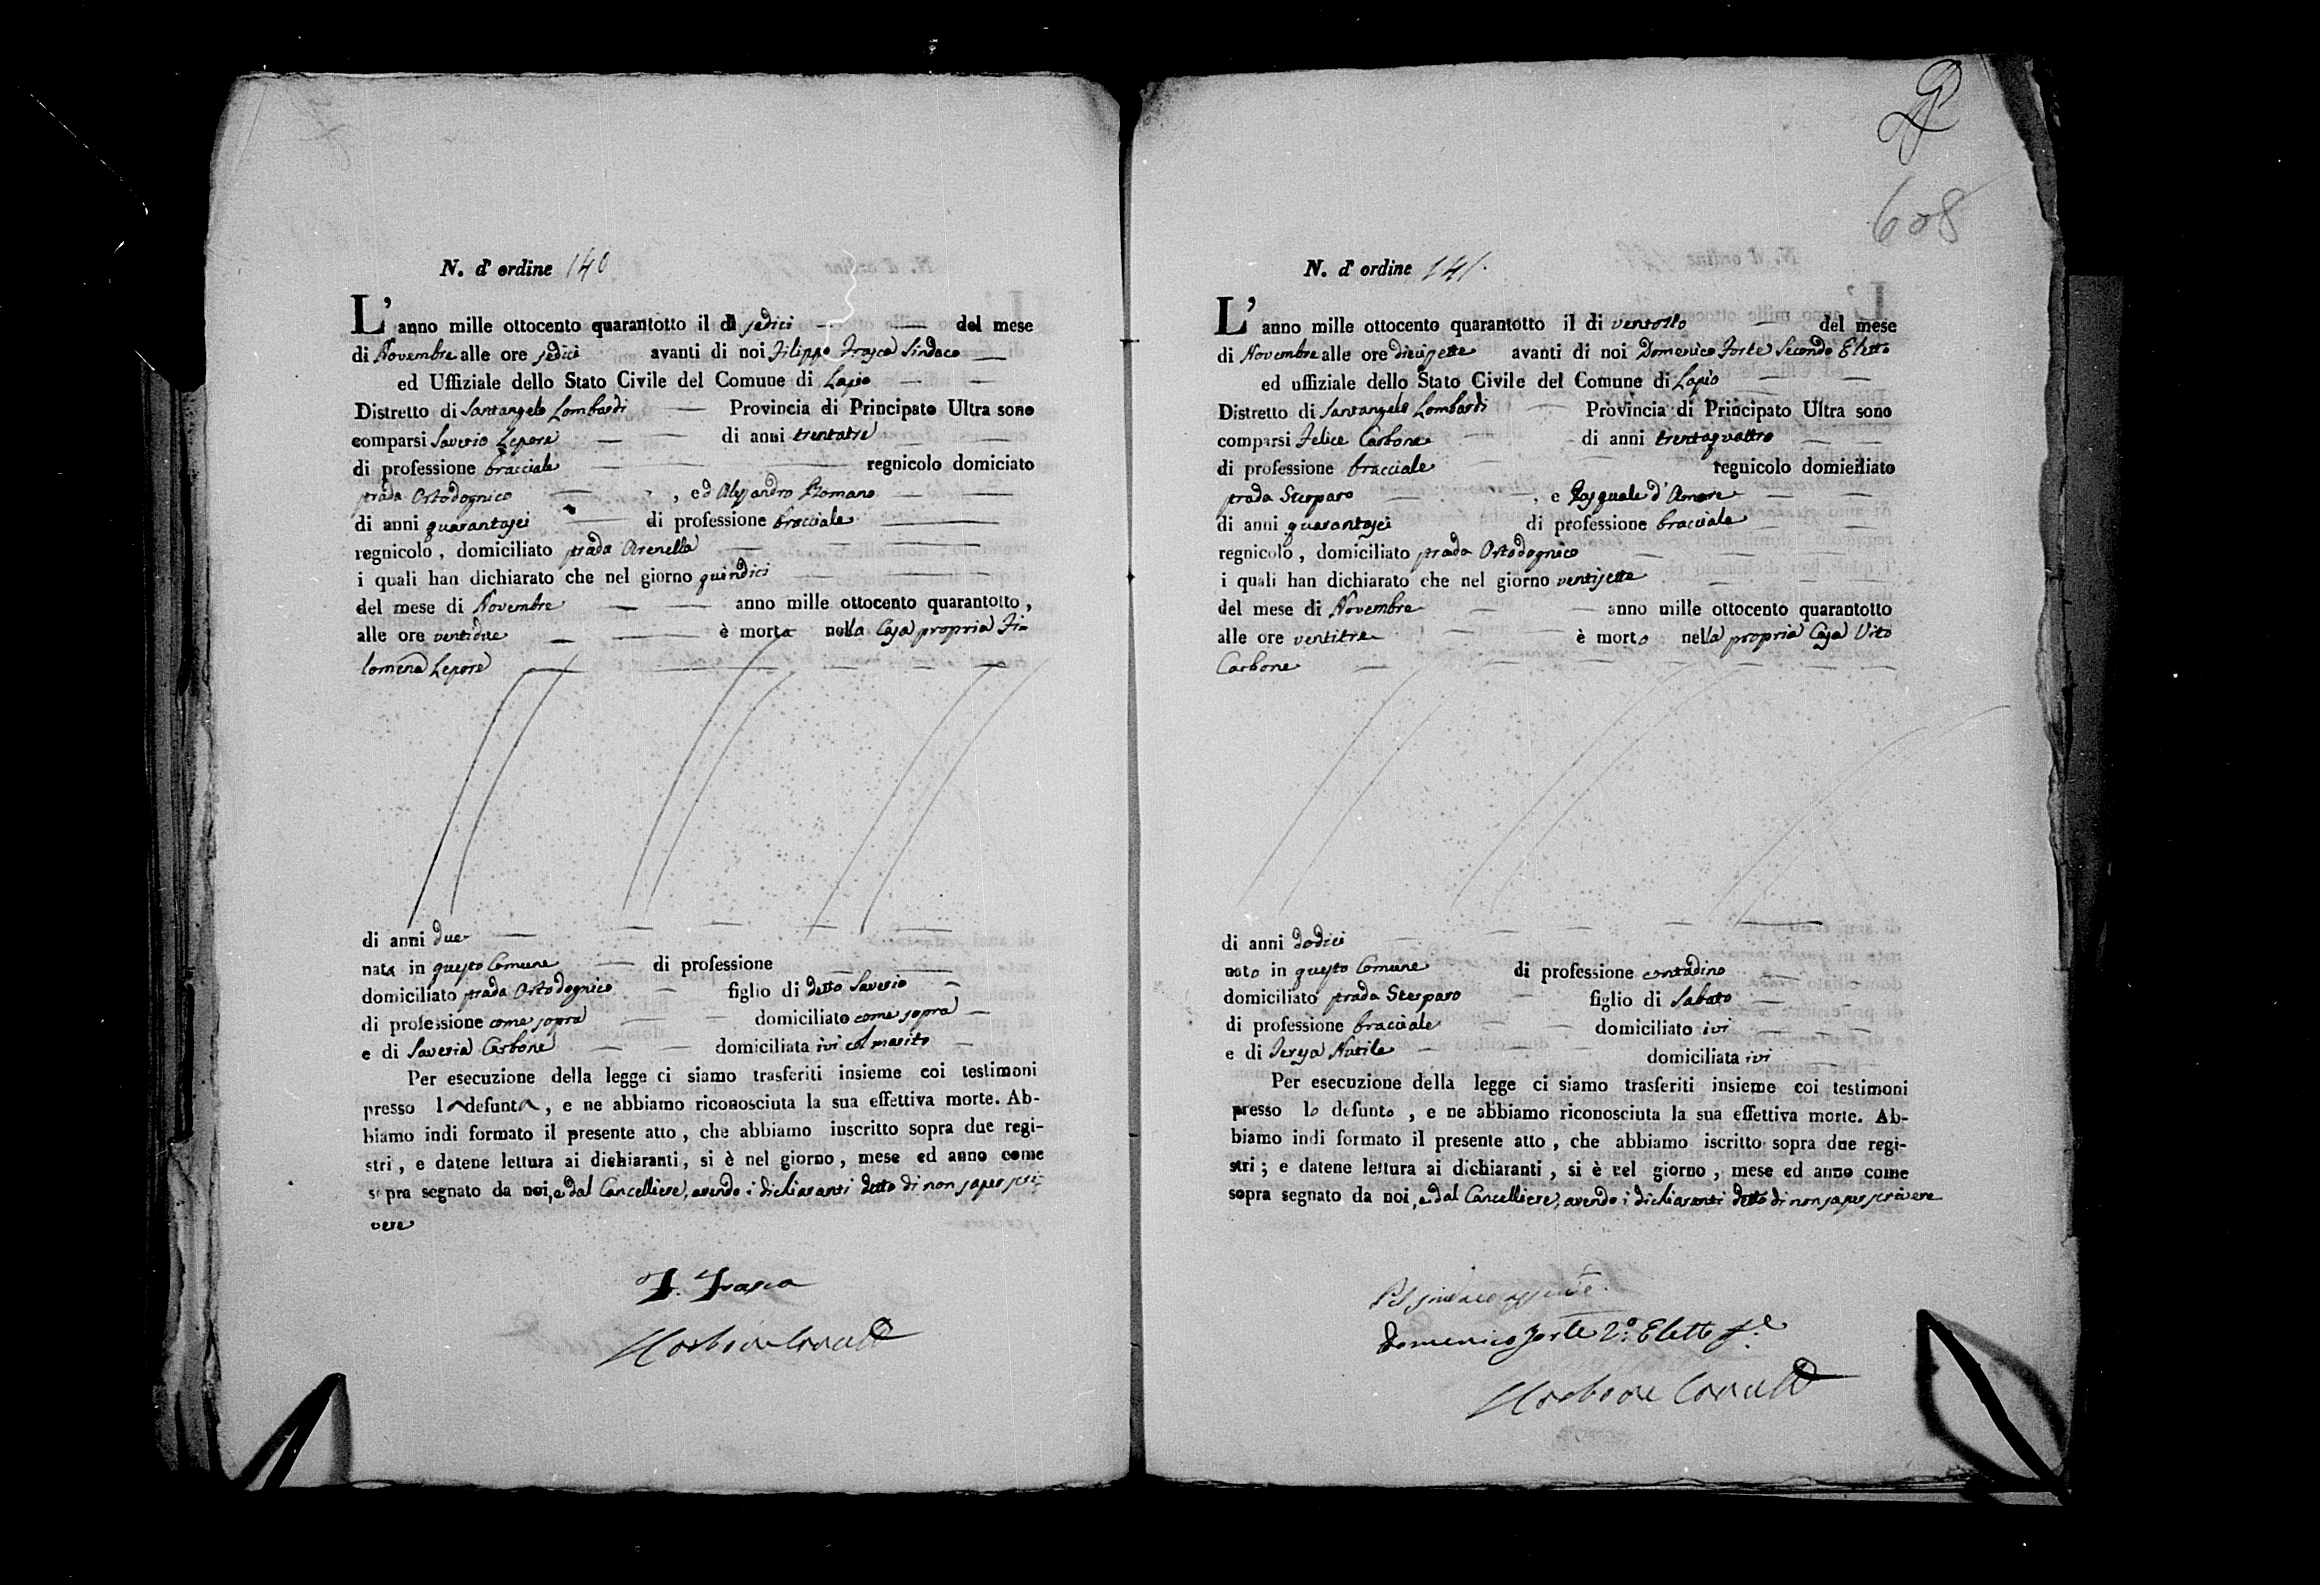 N. d' ordine 140
L' anno mille ottocento quarantotto il dì sedici del mese
di Novembre alle ore sedici avanti di noi Filippo Frasca Sindaco
ed Uffiziale dello Stato Civile del Comune di Lapio
Distretto di Santangelo Lombardi Provincia di Principato Ultra sono
comparsi Saverio Lepore di anni trentatre
di professione bracciale regnicolo domiciato
strada Ortodognico , ed Alesandro Romano
di anni quarantasei di professione bracciale
regnicolo , domiciliato strada Arenella
i quali han dichiarato che nel giorno quindici
del mese di Novembre anno mille ottocento quarantotto ,
alle ore ventidue è morta nella Casa propria Fi=
lomena Lepore
di anni due
nata in questo Comune di professione
domiciliato strada Ortodognico figlio di detto Saverio
di professione come sopra domiciliato come sopra
e di Saveria Carbone domiciliata ivi col marito
Per esecuzione della legge ci siamo trasferiti insieme coi testimoni
presso la defunta , e ne abbiamo riconosciuta la sua effettiva morte. Ab-
biamo indi formato il presente atto , che abbiamo inscritto sopra due regi-
stri , e datene lettura ai dichiaranti , si è nel giorno , mese ed anno come
sopra segnato da noi, e dal Cancelliere, avendo i dichiaranti detto di non saper scri=
vere
F. Frasca
608
N. d' ordine 141.
L' anno mille ottocento quarantotto il di ventotto del mese
di Novembre alle ore diecisette avanti di noi Domenico Forte Secondo Eletto
ed uffiziale dello Stato Civile del Comune di Lapio
Distretto di Santangelo Lombardi Provincia di Principato Ultra sono
comparsi Felice Carbone di anni trentaquattro
di professione bracciale regnicolo domiciliato
strada Stesparo , e Pasquale d'Amore
di anni quarantasei di professione bracciale
regnicolo , domiciliato strada Ortodognico
i quali han dichiarato che nel giorno ventisette
del mese di Novembre anno mille ottocento quarantotto
alle ore ventitre è morto nella propria Casa Vito
Carbone
di anni dodici
nato in questo Comune di professione contadino
domiciliato strada Stesparo figlio di Sabato
di professione bracciale domiciliato ivi
e di Teresa Nutile domiciliata ivi
Per esecuzione della legge ci siamo trasferiti insieme coi testimoni
presso lo defunto , e ne abbiamo riconosciuta la sua effettiva morte. Ab-
biamo indi formato il presente atto , che abbiamo iscritto sopra due regi-
stri ; e datene lettura ai dichiaranti , si è nel giorno , mese ed anno come
sopra segnato da noi, e dal Cancelliere, avendo i dichiaranti detto di non saper scrivere
Domenico Forte 2º Eletto
Carbone